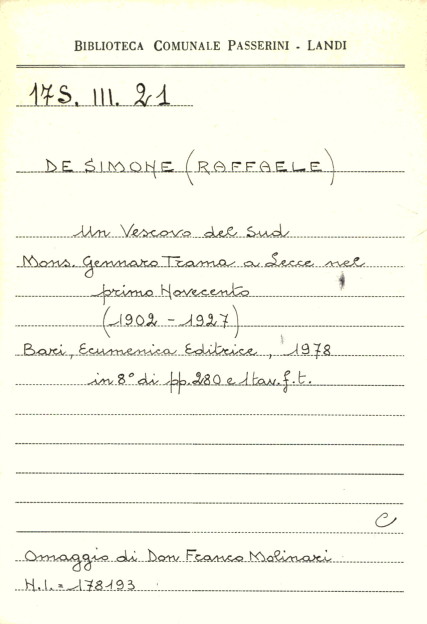 BIBLIOTECA COMUNALE PASSERINI - LANDI
17S. III. 21
DE SIMONE (RAFFAELE)
Un Vescovo del Sud
Mons. Gennaro Trama a Lecce nel
primo Novecento
(1902 - 1927)
Bari, Ecumenica Editrice, 1978
in 8° di pp. 280 e 1 tav. f. t.
C
Omaggio di Don Franco Molinari
N.I. = 178193